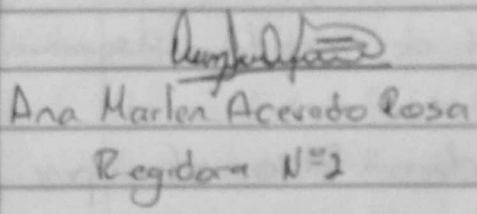 Ana Marlen Acevedo Rosa
Regidora Nº2